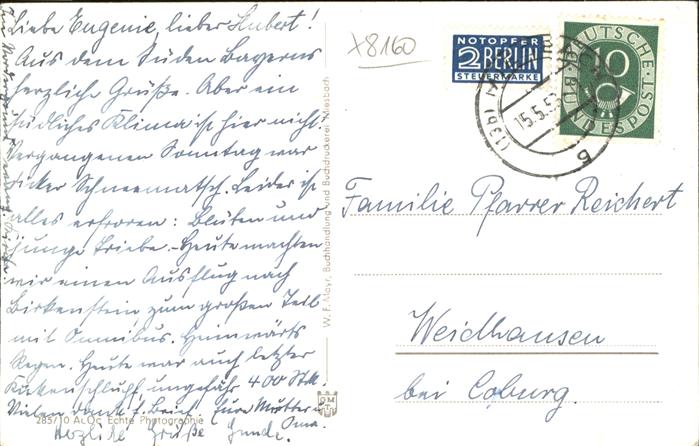 Liebe Eugenie, lieber Hubert!
Aus dem Süden Bayerns
herzliche Grüße. Aber ein
südliches Klima ist hier nicht.
Vergangenen Sonntag war
dicker Schneematsch. Leider ist
alles erfroren: Blüten und
junge Triebe. - Heute machten
wir einen Ausflug nach
Birkenstein zum großen Teil
mit Omnibus. Heimwärts
Regen. Heute war auch letzter
ungefähr 400 Stk.
Vielen Dank f. Brief. Eure Mutter u.
Oma.
Herzliche Grüße
285/10 A.Oc Echte Photographie
W. F. Mayr, Buchhandlung und Buchdruckerei, Miesbach
x8160
NOTOPFER
2 BERLIN
STEUERMARKE
DEUTSCHE
BUNDESPOST
10
15.5.5
(13b)
b
Familie Pfarrer Reichert
Weidhausen
bei Coburg.